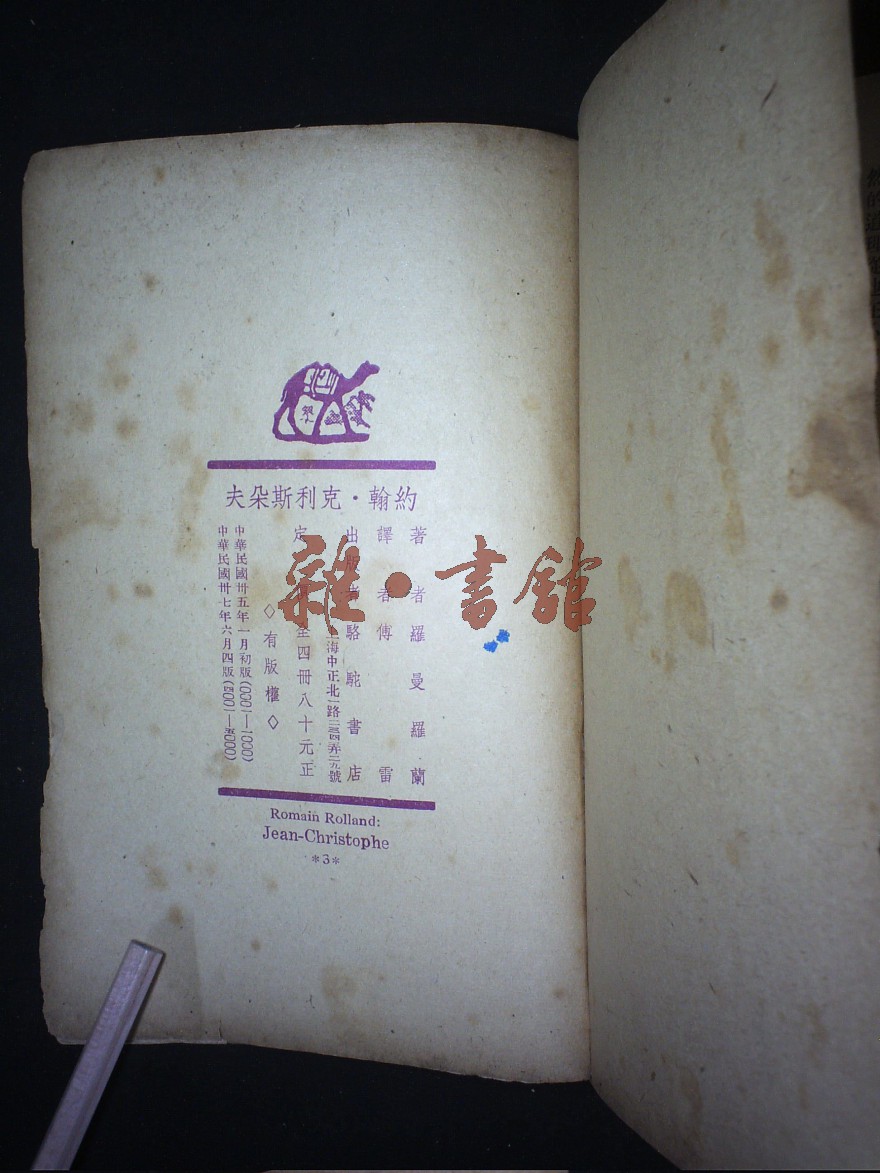 約翰・克利斯朵夫
著者羅曼羅蘭
譯者傅雷
出版者駱駝書店
海中正北一路三四弄二九號
定 全四冊八十元正
◇有版權◇
中華民國卅五年一月初版(000一—一000)
中華民國卅七年六月四版(四00一—五000)
Romain Rolland:
Jean-Christophe
*3*
雜・書館